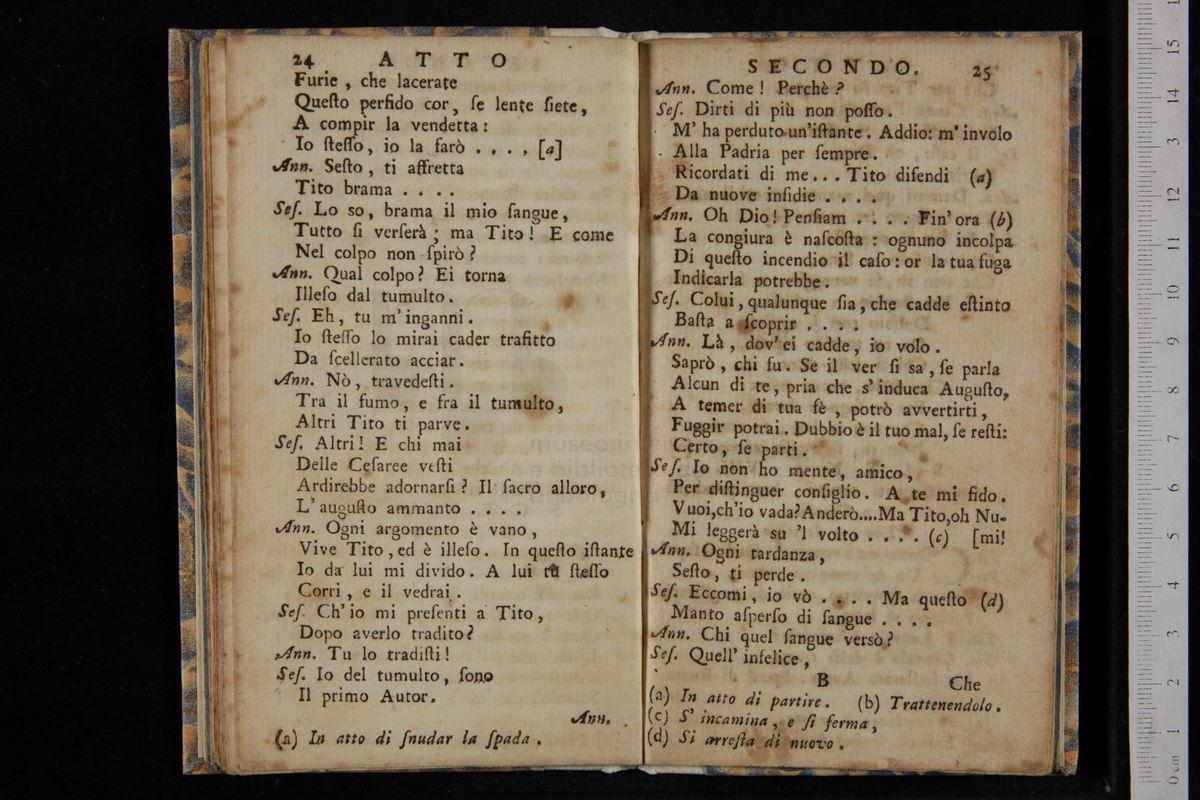 24 ATTO
Furie, che lacerate
Queſto perfido cor, ſe lente ſiete,
A compir la vendetta:
Io ſteſſo, io la farò .... [a]
Ann. Seſto, ti affretta
Tito brama ....
Seſ. Lo so, brama il mio ſangue,
Tutto ſi verſerà; ma Tito! E come
Nel colpo non ſpirò?
Ann. Qual colpo? Ei torna
Illeſo dal tumulto.
Seſ. Eh, tu m'inganni.
Io ſteſſo lo mirai cader trafitto
Da ſcellerato acciar.
Ann. Nò, travedeſti.
Tra il fumo, e fra il tumulto,
Altri Tito ti parve.
Seſ. Altri! E chi mai
Delle Ceſaree veſti
Ardirebbe adornarſi? Il ſacro alloro,
L'auguſto ammanto ....
Ann. Ogni argomento è vano,
Vive Tito, ed è illeſo. In queſto iſtante
Io da lui mi divido. A lui tu ſteſſo
Corri, e il vedrai.
Seſ. Ch'io mi preſenti a Tito,
Dopo averlo tradito?
Ann. Tu lo tradiſti!
Seſ. Io del tumulto, ſono
Il primo Autor.
Ann.
(a) In atto di ſnudar la ſpada.
SECONDO. 25
Ann. Come! Perchè?
Seſ. Dirti di più non poſſo.
M'ha perduto un'iſtante. Addio: m'involo
Alla Padria per ſempre.
Ricordati di me... Tito difendi (a)
Da nuove inſidie ....
Ann. Oh Dio! Penſiam .... Fin'ora (b)
La congiura è naſcoſta: ognuno incolpa
Di queſto incendio il caſo: or la tua fuga
Indicarla potrebbe.
Seſ. Colui, qualunque ſia, che cadde eſtinto
Baſta a ſcoprir ....
Ann. Là, dov'ei cadde, io volo.
Saprò, chi fu. Se il ver ſi sa, ſe parla
Alcun di te, pria che s'induca Auguſto,
A temer di tua fè, potrò avvertirti,
Fuggir potrai. Dubbio è il tuo mal, ſe reſti:
Certo, ſe parti.
Seſ. Io non ho mente, amico,
Per diſtinguer conſiglio. A te mi fido.
Vuoi, ch'io vada? Anderò....Ma Tito, oh Nu-
Mi leggerà su 'l volto .... (c) [mi!
Ann. Ogni tardanza,
Seſto, ti perde.
Seſ. Eccomi, io vò .... Ma queſto (d)
Manto aſperſo di ſangue ....
Ann. Chi quel ſangue versò?
Seſ. Quell'infelice,
B Che
(a) In atto di partire. (b) Trattenendolo.
(c) S'incamina, e ſi ferma,
(d) Si arreſta di nuovo.